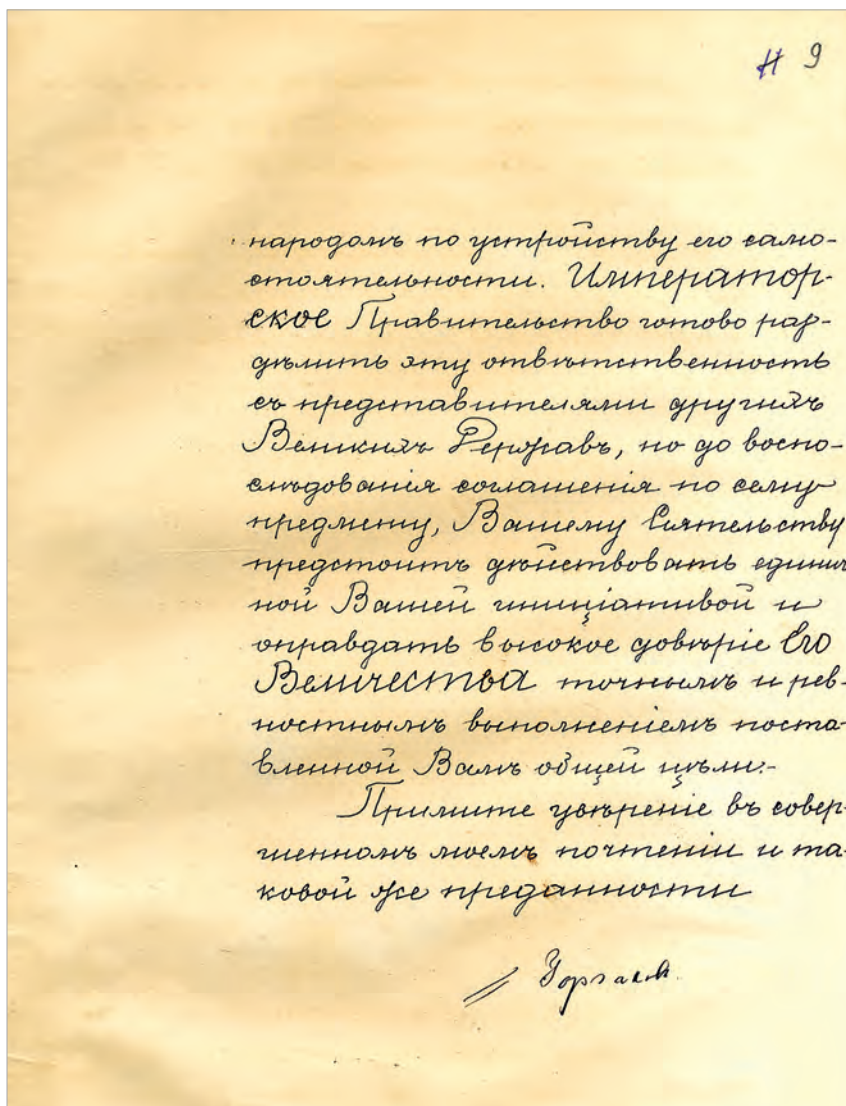 9
народомъ по устройству его само-
стоятельности. Император-
ское Правительство готово раз-
дѣлить эту отвѣтственность
съ представителями другихъ
Великихъ Державъ, но до воспо-
слѣдованія соглашенія по сему
предмету, Вашему Сіятельству
предстоитъ дѣйствовать единич
ной Вашей иниціативой и
оправдать высокое довѣріе Его
Величества точнымъ и рев-
ностнымъ выполненіемъ поста-
вленной Вамъ общей цѣли:-
Примите увѣреніе въ совер-
шенномъ моемъ почтеніи и та-
ковой же преданности